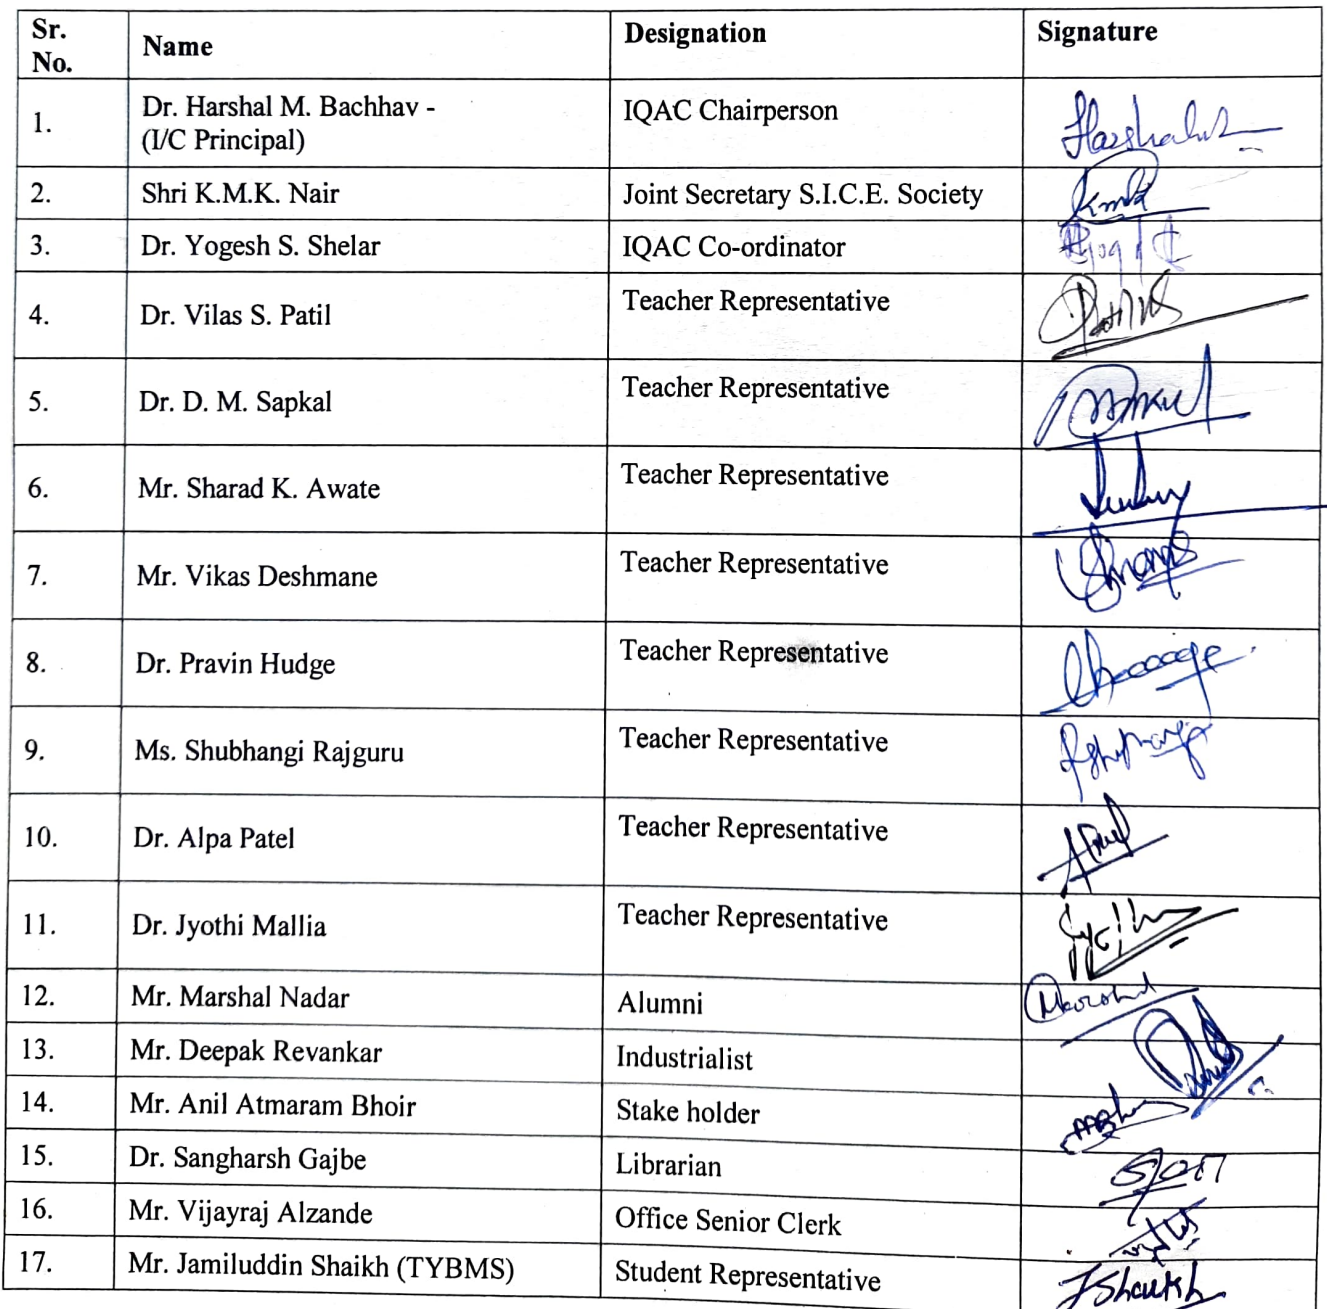 Sr. No. Name Designation Signature
1. Dr. Harshal M. Bachhav - (I/C Principal) IQAC Chairperson
2. Shri K.M.K. Nair Joint Secretary S.I.C.E. Society
3. Dr. Yogesh S. Shelar IQAC Co-ordinator
4. Dr. Vilas S. Patil Teacher Representative
5. Dr. D. M. Sapkal Teacher Representative
6. Mr. Sharad K. Awate Teacher Representative
7. Mr. Vikas Deshmane Teacher Representative
8. Dr. Pravin Hudge Teacher Representative
9. Ms. Shubhangi Rajguru Teacher Representative
10. Dr. Alpa Patel Teacher Representative
11. Dr. Jyothi Mallia Teacher Representative
12. Mr. Marshal Nadar Alumni
13. Mr. Deepak Revankar Industrialist
14. Mr. Anil Atmaram Bhoir Stake holder
15. Dr. Sangharsh Gajbe Librarian
16. Mr. Vijayraj Alzande Office Senior Clerk
17. Mr. Jamiluddin Shaikh (TYBMS) Student Representative JShaikh